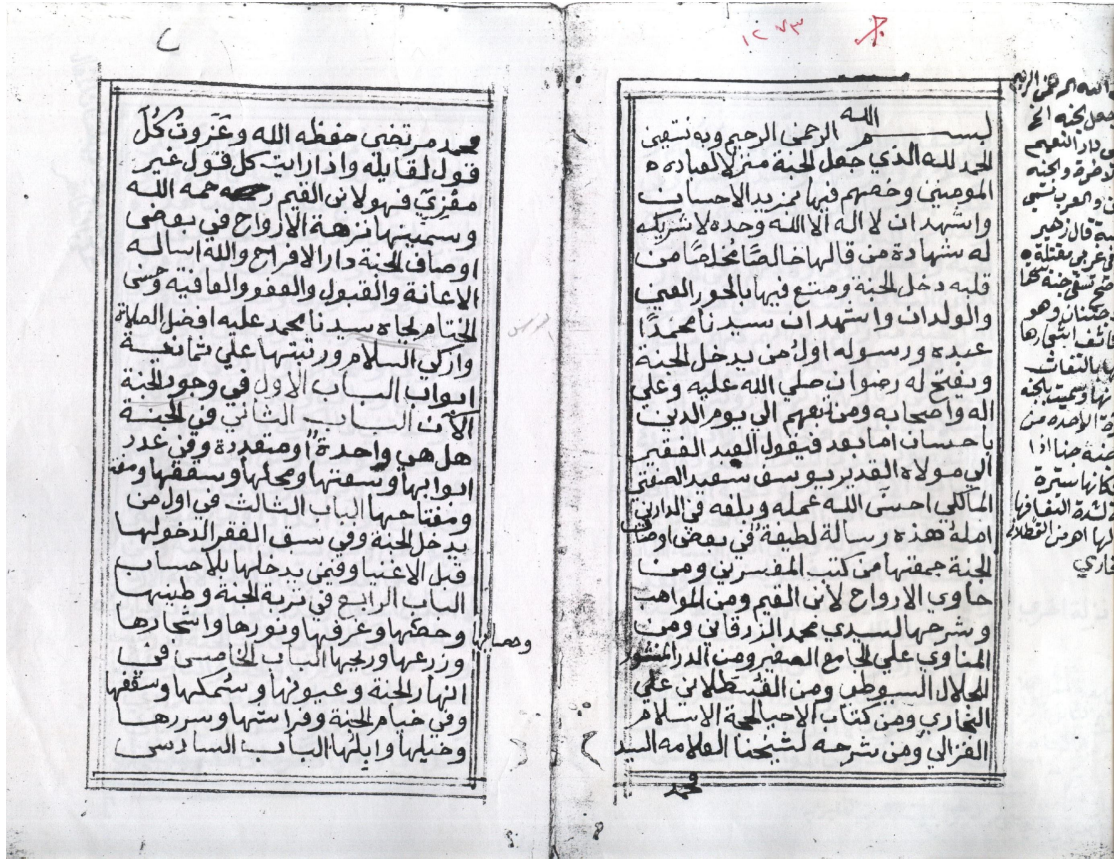 ١٢٧٣
بسم الله الرحمن الرحيم وبه نستعين
الحمد لله الذي جعل الجنة منزلا لعباده
المومنين وخصهم فيها بمزيد الاحسان
واشهد ان لا اله الا الله وحده لا شريك
له شهادة من قالها خالصًا مُخلصًا من
قلبه دخل الجنة ومتع فيها بالحور العين
والولدان واشهد ان سيدنا محمدًا
عبده ورسوله اول من يدخل الجنة
ويفتح له رضوان صلي الله عليه وعلي
اله واصحابه ومن تبعهم الي يوم الدين
باحسان اما بعد فيقول العبد الفقير
الي مولاه القدير يوسف سعيد الصفتي
المالكي احسن الله عمله وبلغه في الدارين
امله هذه رسالة لطيفة في بعض اوصاف
الجنة جمعتها من كتب المفسرين ومن
حاوي الارواح لابن القيم ومن المواهب
وشرحها لسيدي محمد الزرقاني ومن
المناوي علي الجامع الصغير ومن الدر المنثور
للجلال السيوطي ومن القسطلاني علي
البخاري ومن كتاب الاحيا لحجة الاسلام
الغزالي ومن شرحه لشيخنا العلامه السيد
محمد
الله الرحمن الرحيم
دار النعيم
الاخرة والجنة
والعرب تسمي
قال زهير
غربي مقتلة
تسقي جنة
وهو
بالتفاف
وسميت بالجنة
الواحدة من
جنه جنا اذا
ستره
لشدة التفافها
اهـ من القسطلاني
٢
محمد مرتضي حفظه الله وعَزَوتُ كُلَّ
قول لقايله واذا رايت كل قول غير
معْزيّ فهو لابن القيم رحمه الله
وسميتها نزهة الارواح في بعض
اوصاف الجنة دار الافراح والله اساله
الاعانة والقبول والعفو والعافية وحسن
الختام بجاه سيدنا محمد عليه افضل الصلاة
وازكي السلام ورتبتها علي ثمانية
ابواب الباب الاول في وجود الجنة
الآن الباب الثاني في الجنة
هل هي واحدة او متعددة وفي عدد
ابوابها وسعتها ومحلها وسقفها
ومفتاحها الباب الثالث في اول من
يدخل الجنة وفي سبق الفقرا لدخولها
قبل الاغنيا وفيمن يدخلها بلا حساب
الباب الرابع في تربة الجنة وطينها
وحصبائها
وغرفها ونورها واشجارها
وزرعها وريحها الباب الخامس في
انهار الجنة وعيونها وسمكها وسقفها
وفي خيام الجنة وفراشها وسررها
وخيلها وابلها الباب السادس